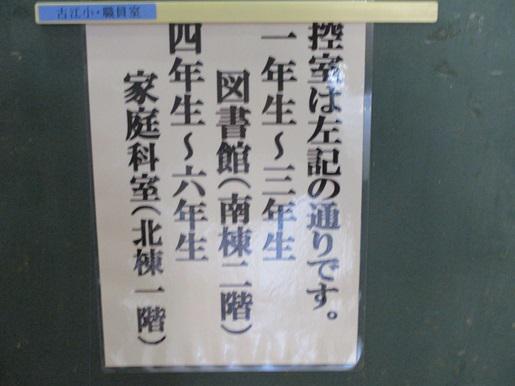 古江小・職員室
控室は左記の通りです。
一年生～三年生
図書館(南棟二階)
四年生～六年生
家庭科室(北棟一階)